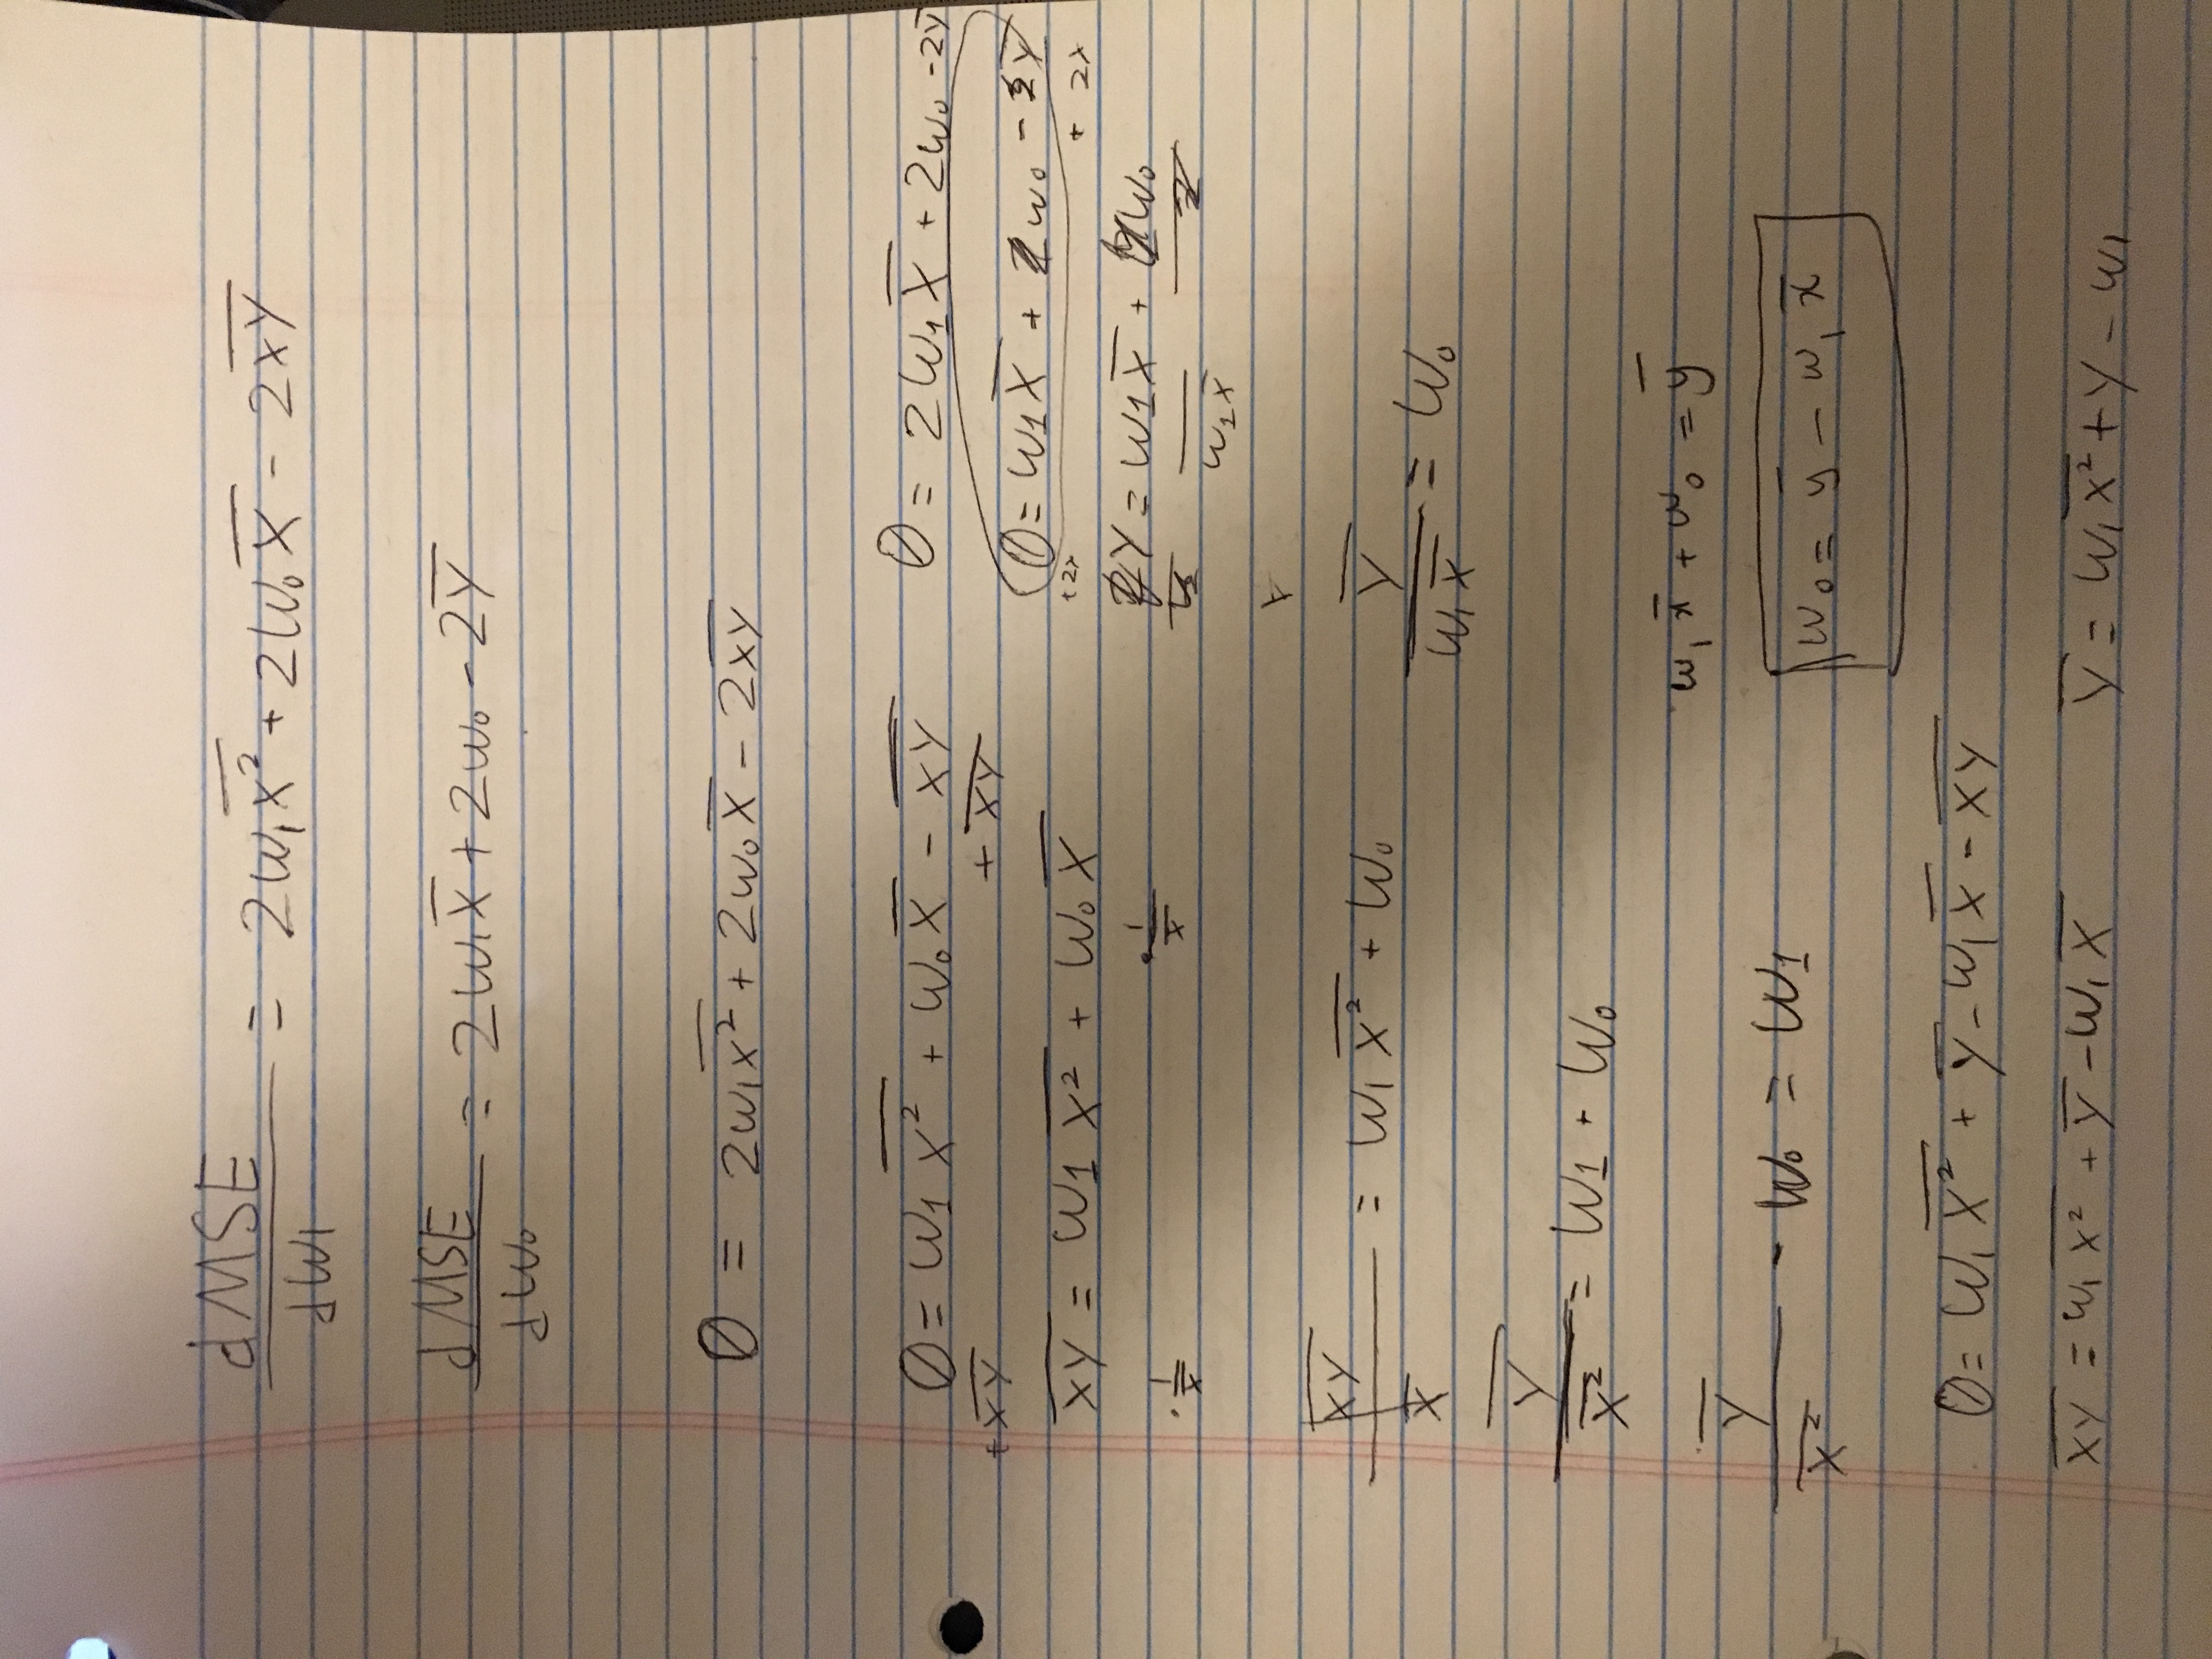 dMSE/dw₁ = 2w₁x̅²̅ + 2w₀x̅ - 2x̅y̅
dMSE/dw₀ = 2w₁x̅ + 2w₀ - 2y̅
0 = 2w₁x̅²̅ + 2w₀x̅ - 2x̅y̅
0 = w₁x̅²̅ + w₀x̅ - x̅y̅
+x̅y̅ + x̅y̅
x̅y̅ = w₁x̅²̅ + w₀x̅
· 1/x̅ · 1/x̅
x̅y̅/x̅ = w₁x̅²̅ + w₀
y̅/x̅²̅ = w₁ + w₀
y̅/x̅²̅ - w₀ = w₁
0 = 2w₁x̅ + 2w₀ - 2y̅
0 = w₁x̅ + w₀ - y̅
+2x + 2x
y = w₁x̅ + w₀
w₁x̅
y̅/w₁x̅ = w₀
w₁x̅ + w₀ = y̅
w₀ = y̅ - w₁x̅
0 = w₁x̅²̅ + y̅ - w₁x̅ - x̅y̅
x̅y̅ = w₁x̅²̅ + y̅ - w₁x̅ y̅ = w₁x̅²̅ + y - w₁